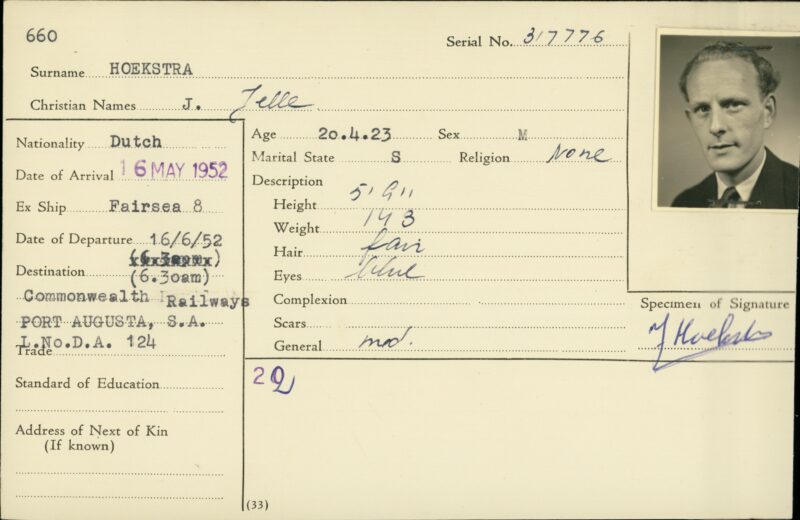 660
Serial No. 317776
Surname HOEKSTRA
Christian Names J. Jelle
Nationality Dutch
Date of Arrival 16 MAY 1952
Ex Ship Fairsea 8
Date of Departure 16/6/52
(6.30am)
Destination (6.30am)
Commonwealth Railways
PORT AUGUSTA, S.A.
L.No.D.A. 124
Trade
Standard of Education
Address of Next of Kin
(If known)
Age 20.4.23 Sex M
Marital State S Religion None
Description
Height 5' 9"
Weight 143
Hair fair
Eyes blue
Complexion
Scars
General med.
22
(33)
Specimen of Signature
J Hoekstra